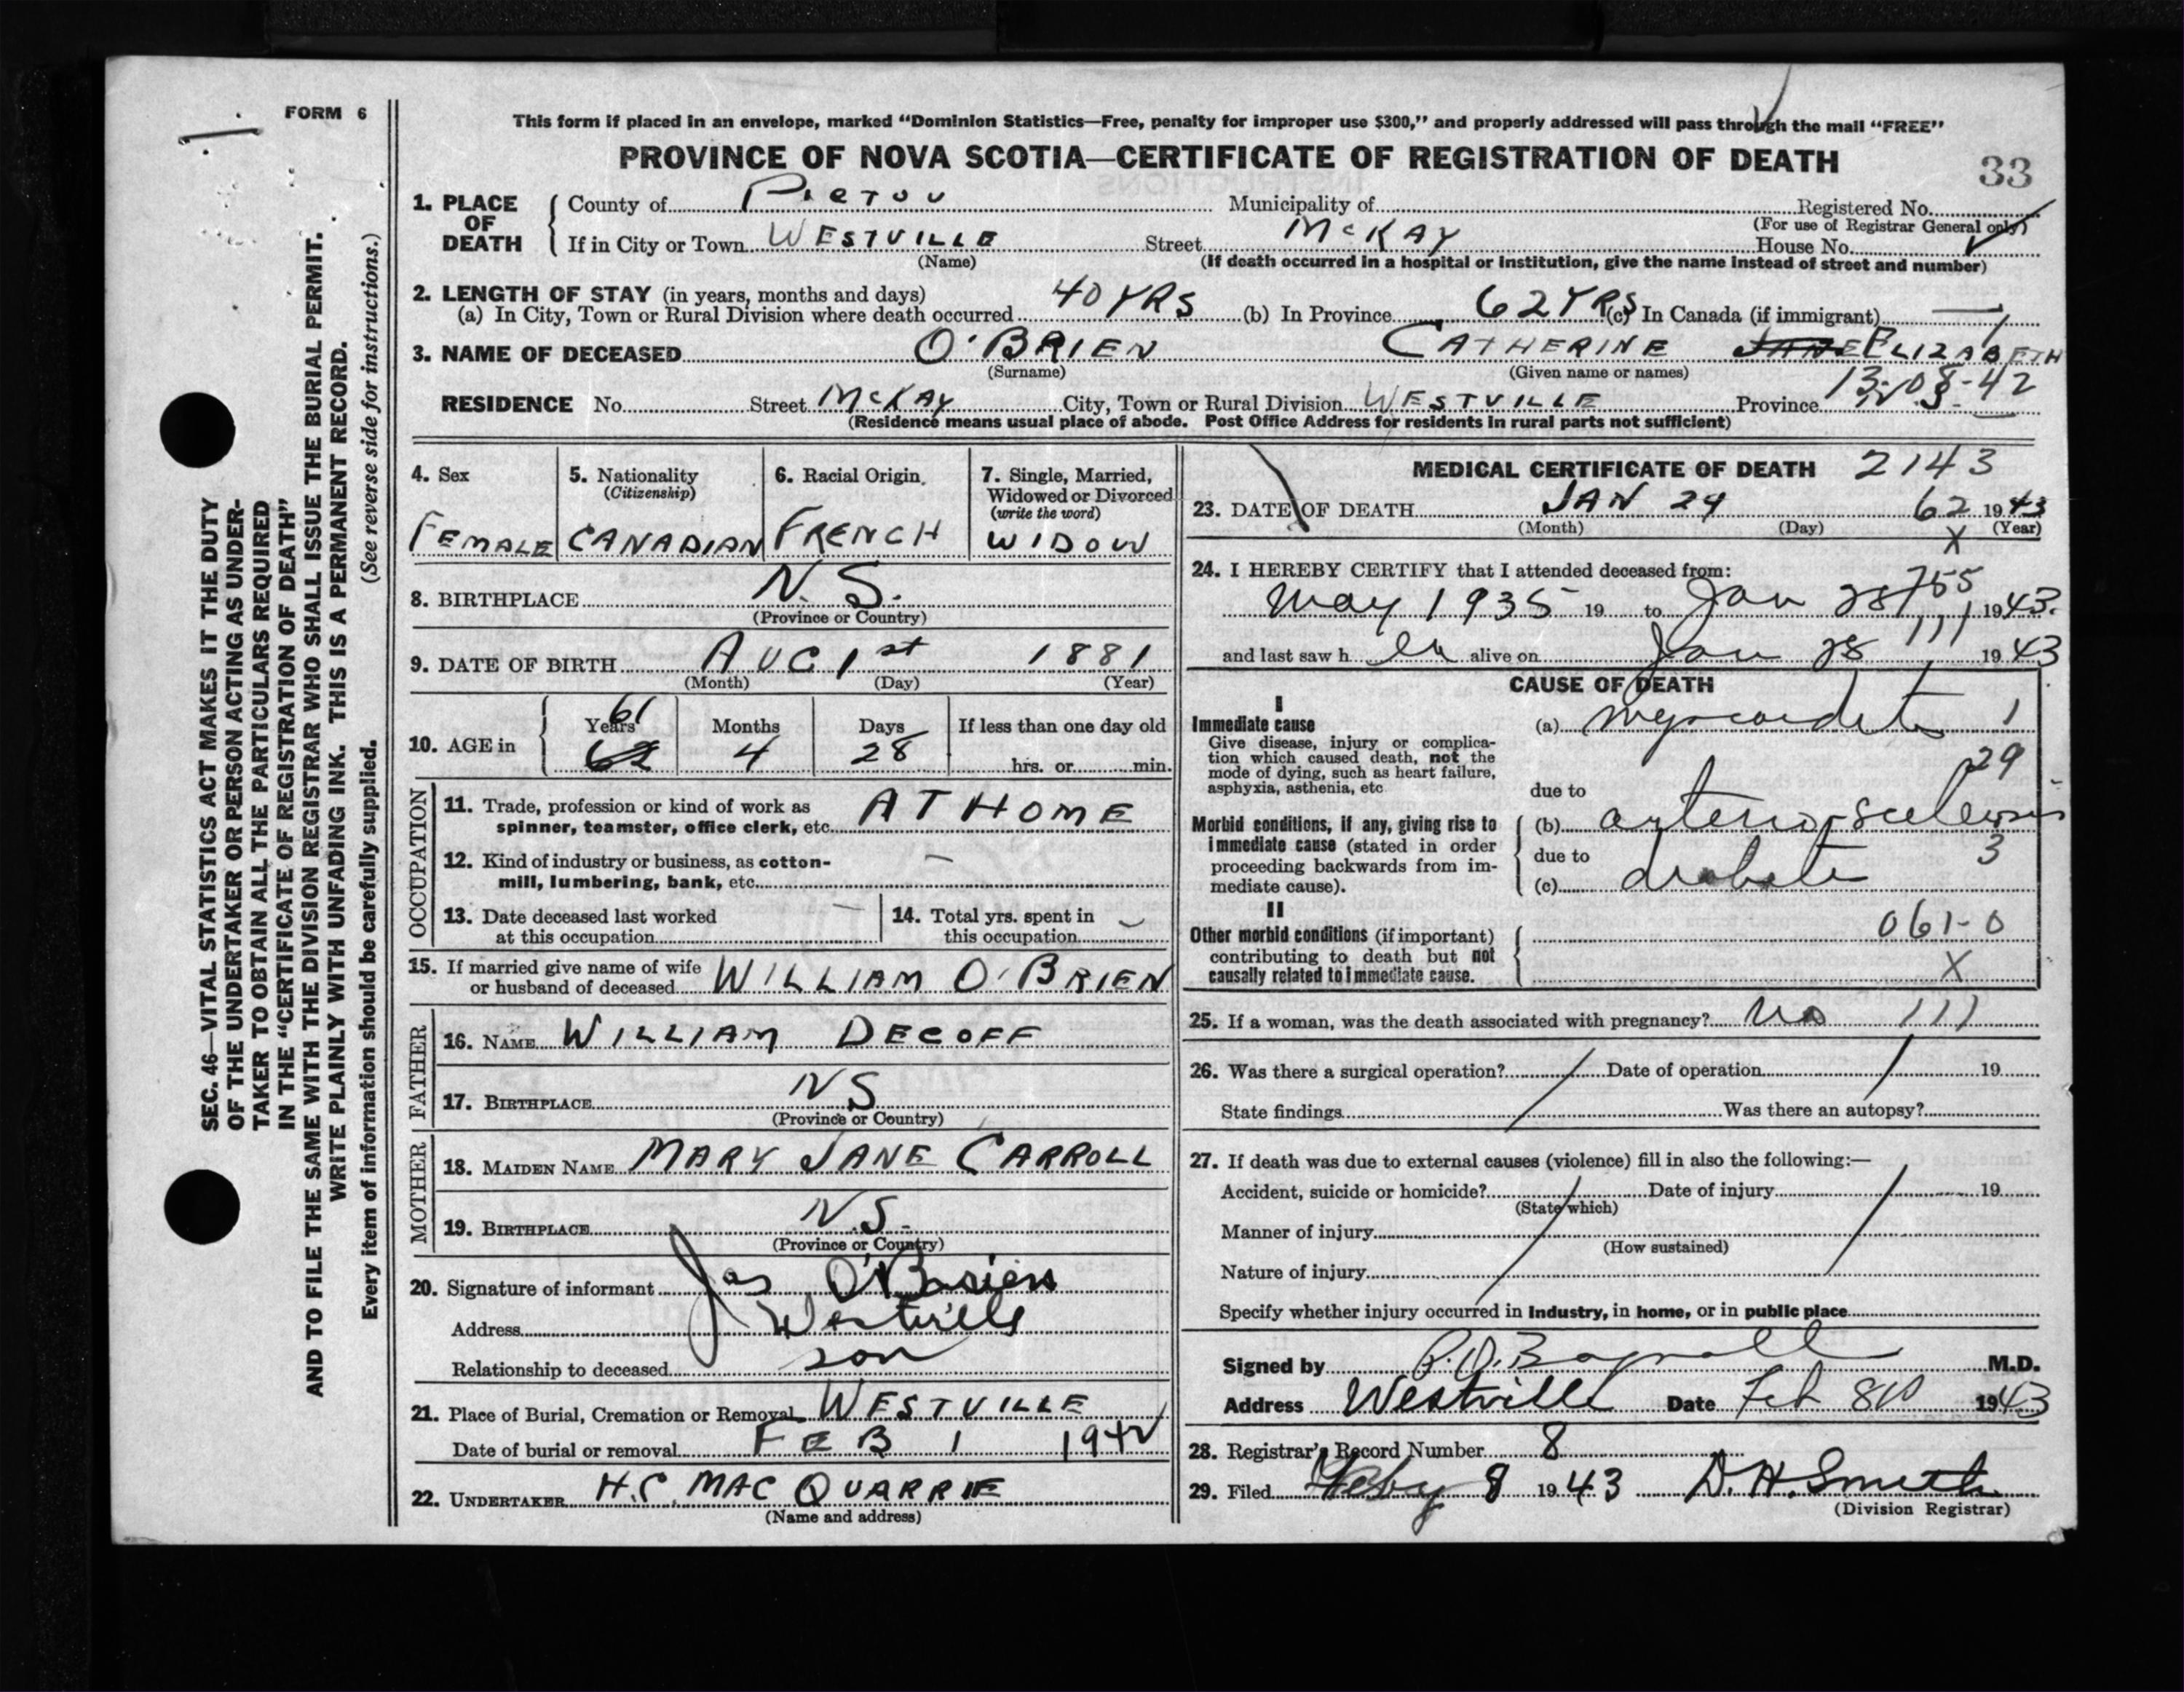 FORM 6
This form if placed in an envelope, marked “Dominion Statistics—Free, penalty for improper use $300,” and properly addressed will pass through the mail “FREE”
PROVINCE OF NOVA SCOTIA—CERTIFICATE OF REGISTRATION OF DEATH
33
1. PLACE OF DEATH
County of PICTOU Municipality of Registered No.
(For use of Registrar General only)
If in City or Town WESTVILLE Street McKAY House No.
(Name) (If death occurred in a hospital or institution, give the name instead of street and number)
2. LENGTH OF STAY (in years, months and days)
(a) In City, Town or Rural Division where death occurred 40 YRS (b) In Province 62 YRS (c) In Canada (if immigrant) —
3. NAME OF DECEASED O'BRIEN CATHERINE JANE ELIZABETH
(Surname) (Given name or names)
13-03-42
RESIDENCE No. Street McKAY City, Town or Rural Division WESTVILLE Province N.S.
(Residence means usual place of abode. Post Office Address for residents in rural parts not sufficient)
4. Sex
FEMALE
5. Nationality
(Citizenship)
CANADIAN
6. Racial Origin
FRENCH
7. Single, Married,
Widowed or Divorced
(write the word)
WIDOW
8. BIRTHPLACE N.S.
(Province or Country)
9. DATE OF BIRTH AUG 1st 1881
(Month) (Day) (Year)
10. AGE in
Years 61 62
Months 4
Days 28
If less than one day old
hrs. or min.
OCCUPATION
11. Trade, profession or kind of work as
spinner, teamster, office clerk, etc. AT HOME
12. Kind of industry or business, as cotton-
mill, lumbering, bank, etc. —
13. Date deceased last worked
at this occupation —
14. Total yrs. spent in
this occupation —
15. If married give name of wife
or husband of deceased WILLIAM O'BRIEN
FATHER
16. NAME WILLIAM DECOFF
17. BIRTHPLACE NS
(Province or Country)
MOTHER
18. MAIDEN NAME MARY JANE CARROLL
19. BIRTHPLACE N.S.
(Province or Country)
20. Signature of informant Jas O'Brien
Address Westville
Relationship to deceased son
21. Place of Burial, Cremation or Removal WESTVILLE
Date of burial or removal FEB 1 194
22. UNDERTAKER H.C. MACQUARRIE
(Name and address)
MEDICAL CERTIFICATE OF DEATH 2143
23. DATE OF DEATH JAN 29 62 1943
(Month) (Day) (Year)
X
24. I HEREBY CERTIFY that I attended deceased from:
755
May 1935 19 to Jan 28 1943.
111
and last saw her alive on Jan 28 1943
CAUSE OF DEATH
I
Immediate cause
Give disease, injury or complica-
tion which caused death, not the
mode of dying, such as heart failure,
asphyxia, asthenia, etc
(a) myocardits 1
29
due to
Morbid conditions, if any, giving rise to
immediate cause (stated in order
proceeding backwards from im-
mediate cause).
(b) arterio-sclerosis
due to 3
(c) diabete
II
Other morbid conditions (if important)
contributing to death but not
causally related to immediate cause.
061-0
X
25. If a woman, was the death associated with pregnancy? no 111
26. Was there a surgical operation? Date of operation 19
State findings Was there an autopsy?
27. If death was due to external causes (violence) fill in also the following:—
Accident, suicide or homicide? Date of injury 19
(State which)
Manner of injury
(How sustained)
Nature of injury
Specify whether injury occurred in Industry, in home, or in public place
Signed by Bagnall M.D.
Address Westville Date Feb 8 1943
28. Registrar's Record Number 8
29. Filed Feby 8 1943 D.H. Smith
(Division Registrar)
SEC. 46—VITAL STATISTICS ACT MAKES IT THE DUTY
OF THE UNDERTAKER OR PERSON ACTING AS UNDER-
TAKER TO OBTAIN ALL THE PARTICULARS REQUIRED
IN THE “CERTIFICATE OF REGISTRATION OF DEATH”
AND TO FILE THE SAME WITH THE DIVISION REGISTRAR WHO SHALL ISSUE THE BURIAL PERMIT.
WRITE PLAINLY WITH UNFADING INK. THIS IS A PERMANENT RECORD.
Every item of information should be carefully supplied. (See reverse side for instructions.)